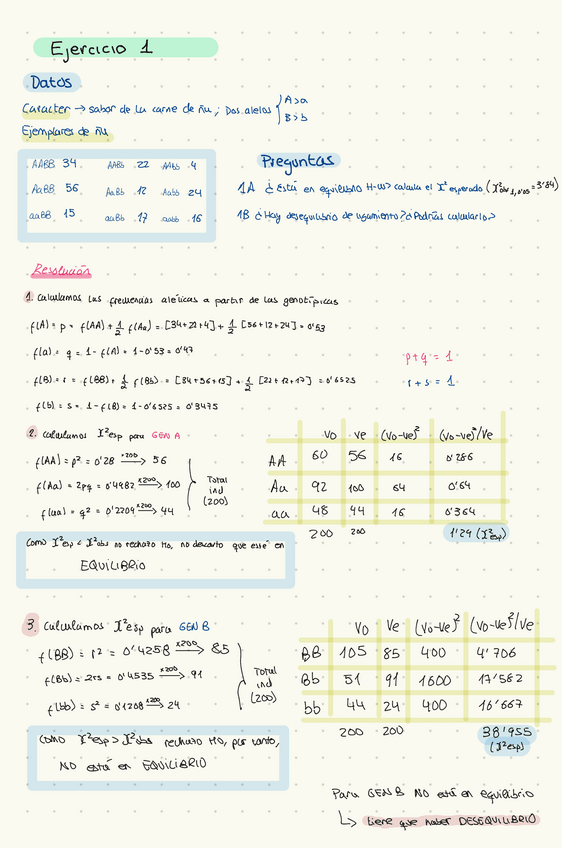 Ejercicio 1
Datos
Caracter → sabor de la carne de ñu; Dos alelos { A>a
B>b
Ejemplares de ñu
AABB 34 AABb 22 AAbb 4
AaBB 56 AaBb 12 Aabb 24
aaBB 15 aaBb 17 aabb 16
Preguntas
1A ¿Está en equilibrio H-W? calcula el X² esperado (X²obs 1, 0'05 = 3'84)
1B ¿Hay desequilibrio de ligamiento? ¿Podrías calcularlo?
Resolución
1. Calculamos las frecuencias alélicas a partir de las genotípicas
f(A) = p = f(AA) + 1/2 f(Aa) = [34+22+4] + 1/2 [56+12+24] = 0'53
f(a) = q = 1 - f(A) = 1 - 0'53 = 0'47
f(B) = r = f(BB) + 1/2 f(Bb) = [34+56+15] + 1/2 [22+12+17] = 0'6525
f(b) = s = 1 - f(B) = 1 - 0'6525 = 0'3475
p+q = 1
r+s = 1
2. Calculamos X²esp para GEN A
f(AA) = p² = 0'28 →x200 56
f(Aa) = 2pq = 0'4982 →x200 100
f(aa) = q² = 0'2209 →x200 44
Total
ind
(200)
Vo Ve (Vo-Ve)² (Vo-Ve)²/Ve
AA 60 56 16 0'286
Aa 92 100 64 0'64
aa 48 44 16 0'364
200 200 1'29 (X²esp)
Como X²esp < X²obs no rechazo H0, no descarto que esté en
EQUILIBRIO
3. Calculamos X²esp para GEN B
f(BB) = r² = 0'4258 →x200 85
f(Bb) = 2rs = 0'4535 →x200 91
f(bb) = s² = 0'1208 →x200 24
Total
ind
(200)
Vo Ve (Vo-Ve)² (Vo-Ve)²/Ve
BB 105 85 400 4'706
Bb 51 91 1600 17'582
bb 44 24 400 16'667
200 200 38'955
(X²esp)
Como X²esp > X²obs rechazo H0, por tanto,
NO está en EQUILIBRIO
Para GEN B NO está en equilibrio
↳ tiene que haber DESEQUILIBRIO